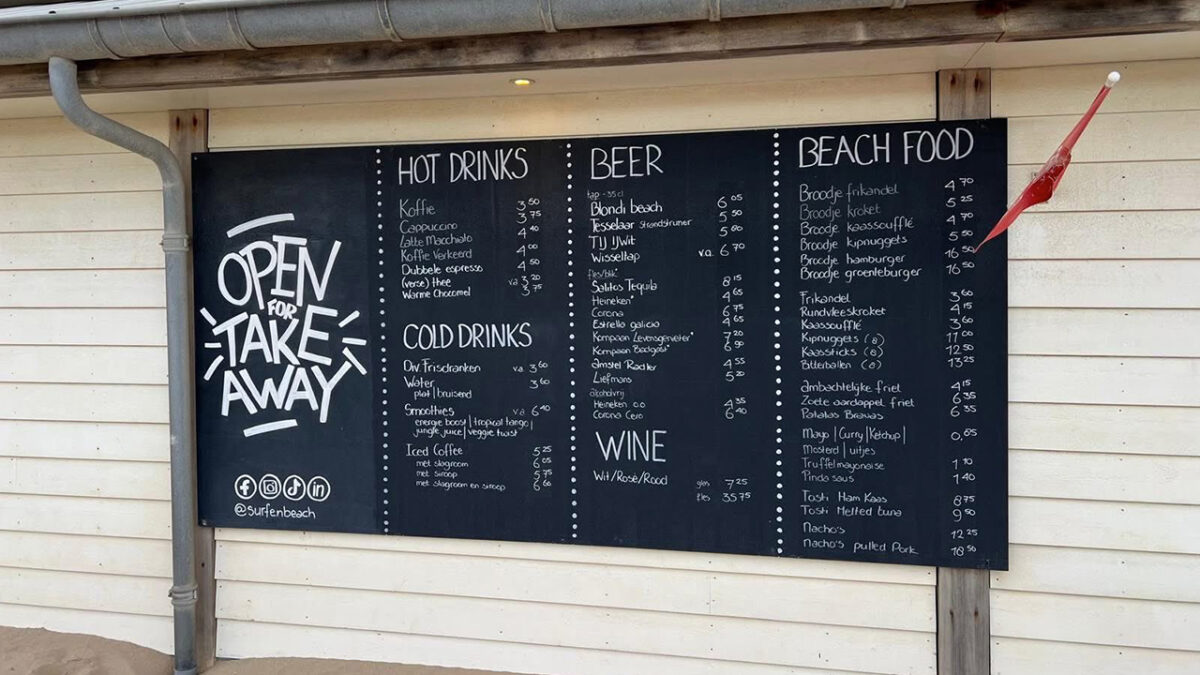 OPEN
FOR
TAKE
AWAY
@surfenbeach
HOT DRINKS
Koffie 3 50
Cappuccino 3 75
Latte Macchiato 4 40
Koffie Verkeerd 4 00
Dubbele espresso 4 50
(verse) thee v.a 3 20
Warme Chocomel 3 75
COLD DRINKS
Div. Frisdranken v.a. 3 60
Water 3 60
plat | bruisend
Smoothies v.a 6 40
energie boost | tropical tango |
jungle juice | veggie twist
Iced Coffee 5 25
met slagroom 6 05
met siroop 5 75
met slagroom en siroop 6 60
BEER
tap - 35cl
Blondi beach 6 05
Tesselaar Strandstruiner 5 50
TIJ IJwit 5 80
Wisseltap v.a. 6 70
fles/blik*
Salitos Tequila 8 15
Heineken* 4 65
Corona 6 75
Estrella galicia 4 65
Kompaan Levensgenieter* 7 20
Kompaan Badgast* 6 90
amstel Radler 4 55
Liefmans 5 20
alcoholvrij
Heineken 0.0 4 35
Corona Cero 6 40
WINE
Wit/Rosé/Rood glas 7 25
fles 35 75
BEACH FOOD
Broodje frikandel 4 70
Broodje kroket 5 25
Broodje kaassoufflé 4 70
Broodje kipnuggets 5 50
Broodje hamburger 16 50
Broodje groenteburger 16 50
Frikandel 3 60
Rundvleeskroket 4 15
Kaassoufflé 3 60
Kipnuggets (8) 11 00
Kaassticks (8) 12 50
Bitterballen (8) 13 25
ambachtelijke friet 4 15
Zoete aardappel friet 6 35
Patatas Bravas 6 35
Mayo | Curry | Ketchup | 0,85
Mosterd | uitjes
Truffelmayonaise 1 10
Pinda saus 1 40
Tosti Ham Kaas 8 75
Tosti Melted tuna 9 50
Nacho's 12 25
Nacho's pulled Pork 18 50